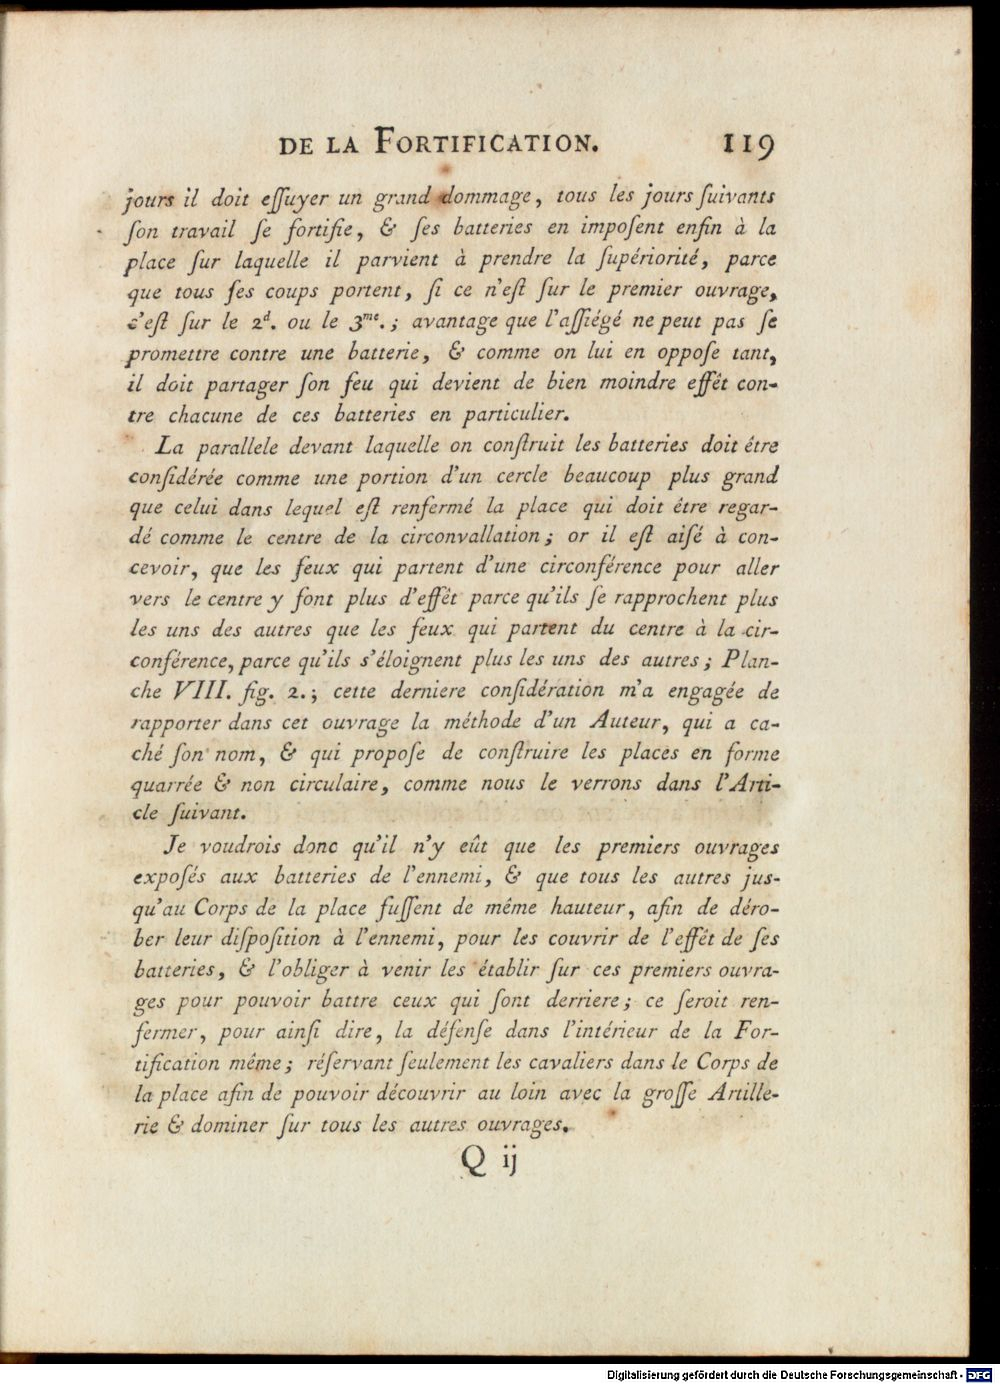 DE LA FORTIFICATION. 119
jours il doit eſſuyer un grand dommage, tous les jours ſuivants
ſon travail ſe fortifie, & ſes batteries en impoſent enfin à la
place ſur laquelle il parvient à prendre la ſupériorité, parce
que tous ſes coups portent, ſi ce n'eſt ſur le premier ouvrage,
c'eſt ſur le 2d. ou le 3me.; avantage que l'aſſiégé ne peut pas ſe
promettre contre une batterie, & comme on lui en oppoſe tant,
il doit partager ſon feu qui devient de bien moindre effêt con-
tre chacune de ces batteries en particulier.
La parallele devant laquelle on conſtruit les batteries doit être
conſidérée comme une portion d'un cercle beaucoup plus grand
que celui dans lequel eſt renfermé la place qui doit être regar-
dé comme le centre de la circonvallation; or il eſt aiſé à con-
cevoir, que les feux qui partent d'une circonférence pour aller
vers le centre y font plus d'effêt parce qu'ils ſe rapprochent plus
les uns des autres que les feux qui partent du centre à la cir-
conférence, parce qu'ils s'éloignent plus les uns des autres; Plan-
che VIII. fig. 2.; cette derniere conſidération m'a engagée de
rapporter dans cet ouvrage la méthode d'un Auteur, qui a ca-
ché ſon nom, & qui propoſe de conſtruire les places en forme
quarrée & non circulaire, comme nous le verrons dans l'Arti-
cle ſuivant.
Je voudrois donc qu'il n'y eût que les premiers ouvrages
expoſés aux batteries de l'ennemi, & que tous les autres jus-
qu'au Corps de la place fuſſent de même hauteur, afin de déro-
ber leur diſpoſition à l'ennemi, pour les couvrir de l'effêt de ſes
batteries, & l'obliger à venir les établir ſur ces premiers ouvra-
ges pour pouvoir battre ceux qui ſont derriere; ce ſeroit ren-
fermer, pour ainſi dire, la défenſe dans l'intérieur de la For-
tification même; réſervant ſeulement les cavaliers dans le Corps de
la place afin de pouvoir découvrir au loin avec la groſſe Artille-
rie & dominer ſur tous les autres ouvrages.
Q ij
Digitalisierung gefördert durch die Deutsche Forschungsgemeinschaft - DFG